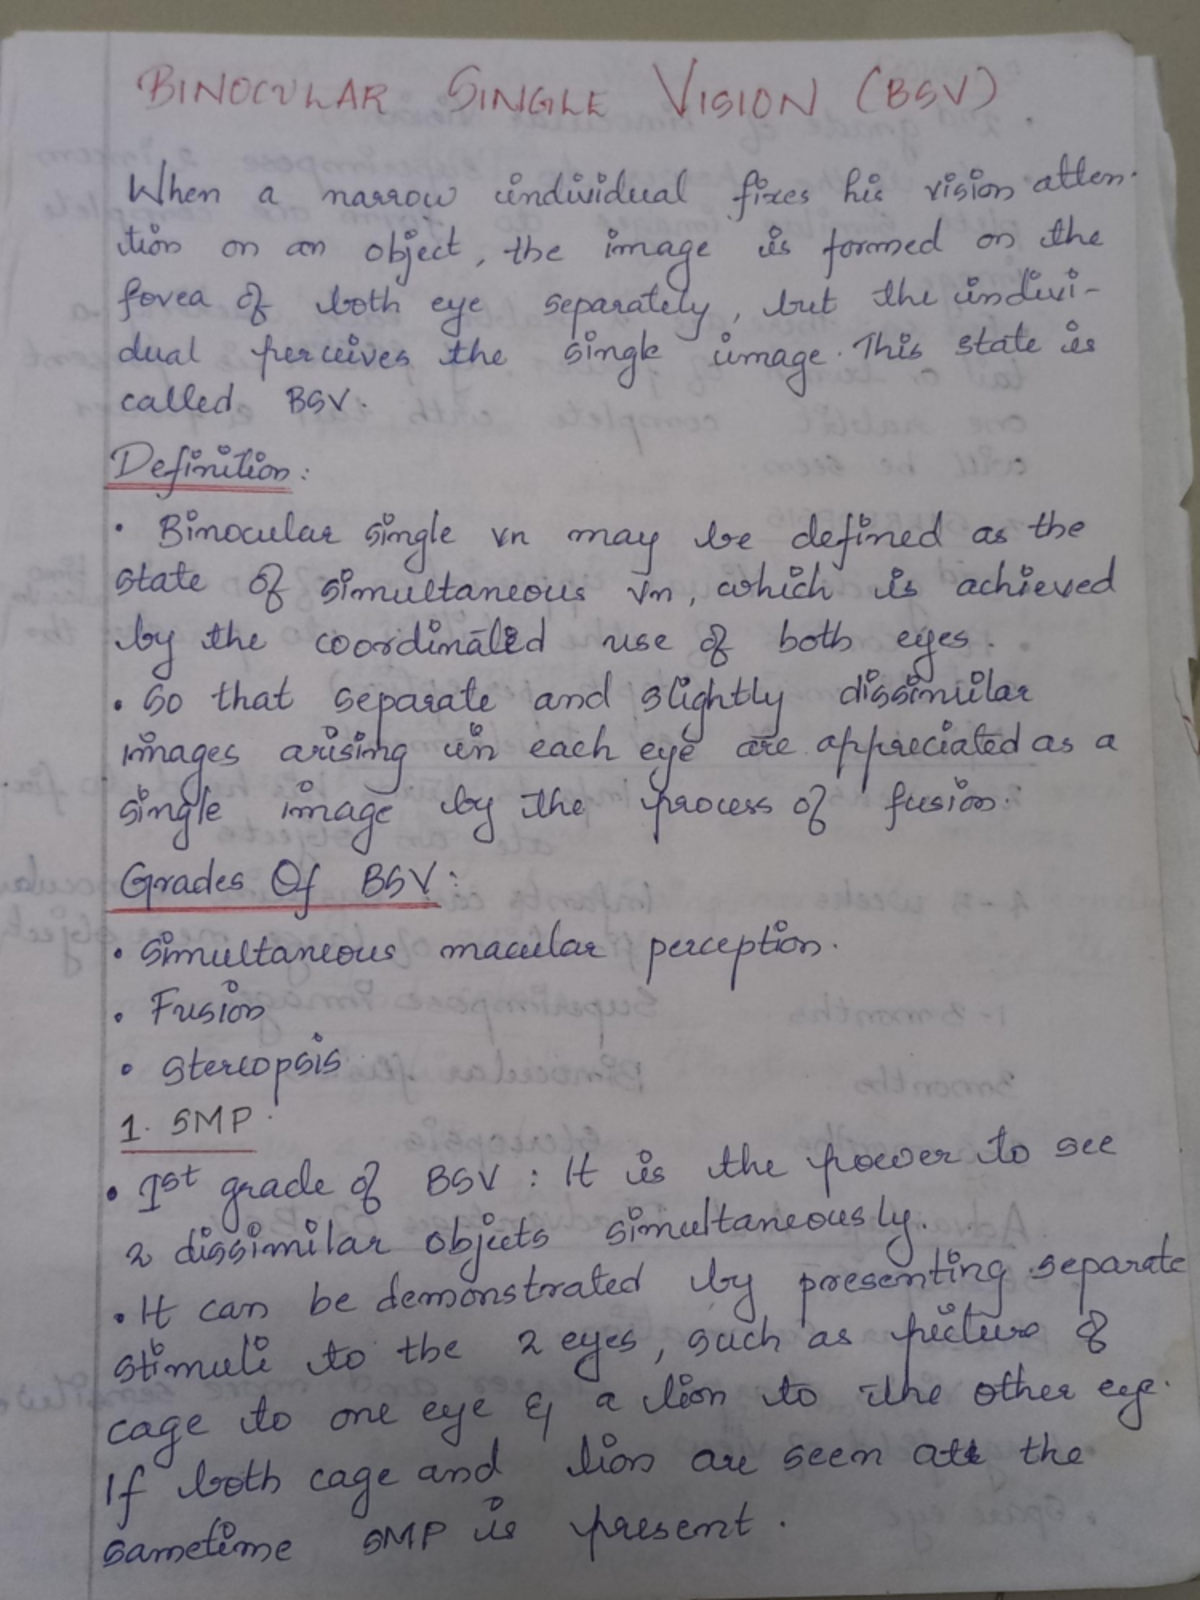 BINOCULAR SINGLE VISION (BSV)
When a narrow individual fixes his vision atten-
tion on an object, the image is formed on the
fovea of both eye separately, but the indivi-
dual perceives the single image. This state is
called BSV.
Definition:
• Binocular single vn may be defined as the
state of simultaneous vn, which is achieved
by the coordinated use of both eyes.
• So that separate and slightly dissimilar
images arising in each eye are appreciated as a
single image by the process of fusion.
Grades Of BSV:
• Simultaneous macular perception.
• Fusion
• Stereopsis
1. SMP.
• 1st grade of BSV : It is the power to see
2 dissimilar objects simultaneously.
• It can be demonstrated by presenting separate
stimuli to the 2 eyes, such as picture of
cage to one eye & a lion to the other eye.
If both cage and lion are seen at the
sametime SMP is present.